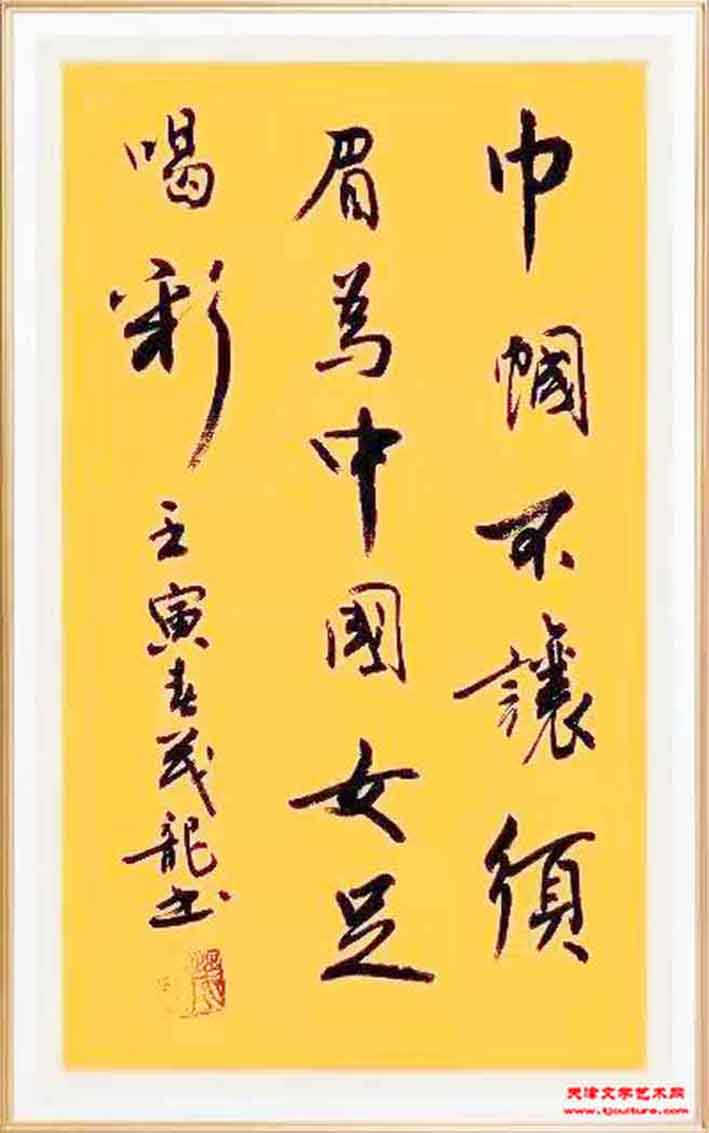 巾帼不讓须
眉為中國女足
喝彩
壬寅春茂龍书
天津文学艺术网
www.tjculture.com